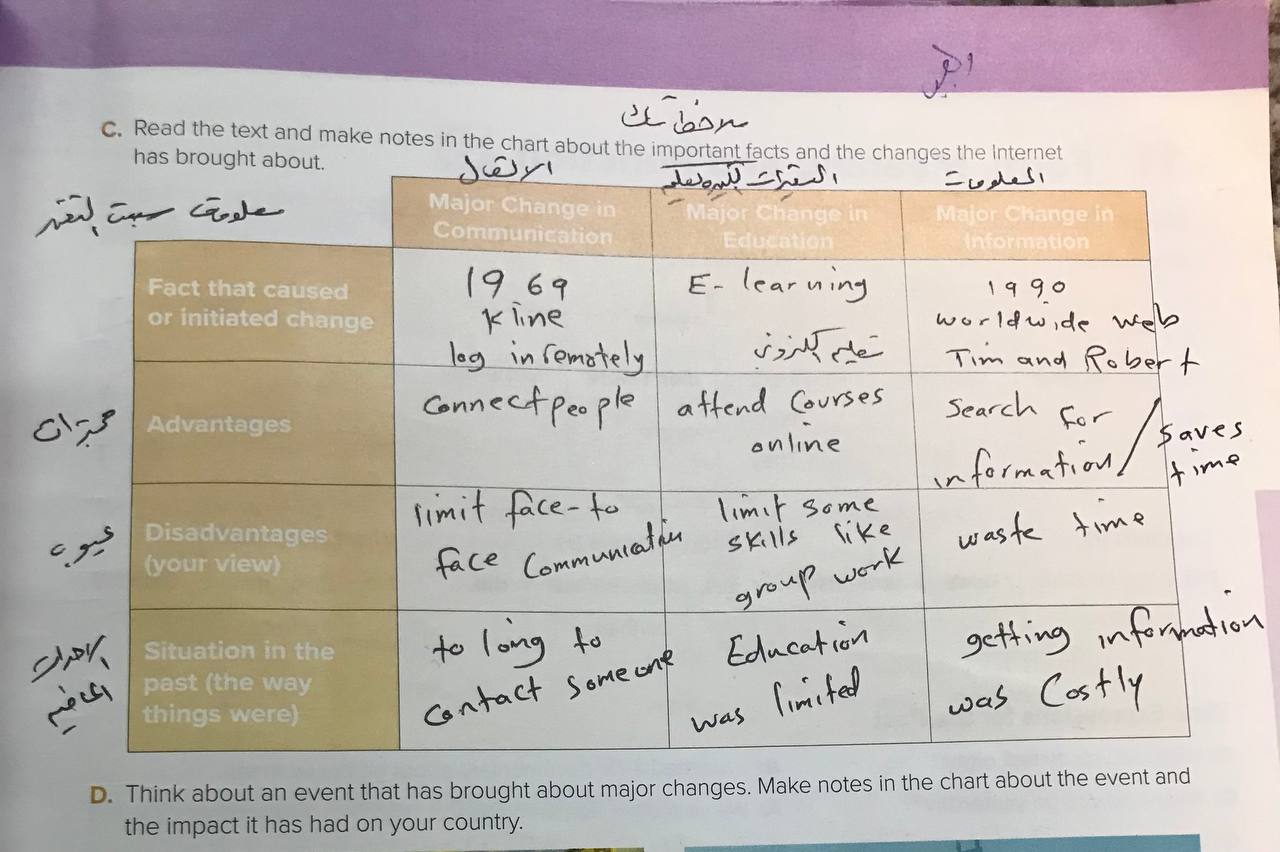 ملاحظاتك
C. Read the text and make notes in the chart about the important facts and the changes the Internet
has brought about.
المعلومات
معلومة سببت التغير
Major Change in
Communication
Major Change in
Education
Major Change in
Information
Fact that caused
or initiated change
1969
Kline
log in remotely
E-learning
تعليم الكتروني
1990
worldwide web
Tim and Robert
مميزات
Advantages
Connect people
attend Courses
online
Search for
information/
saves
time
عيوب
Disadvantages
(your view)
limit face-to
face Communication
limit some
skills like
group work
waste time
Situation in the
past (the way
things were)
to long to
contact someone
Education
was limited
getting information
was Costly
D. Think about an event that has brought about major changes. Make notes in the chart about the event and
the impact it has had on your country.